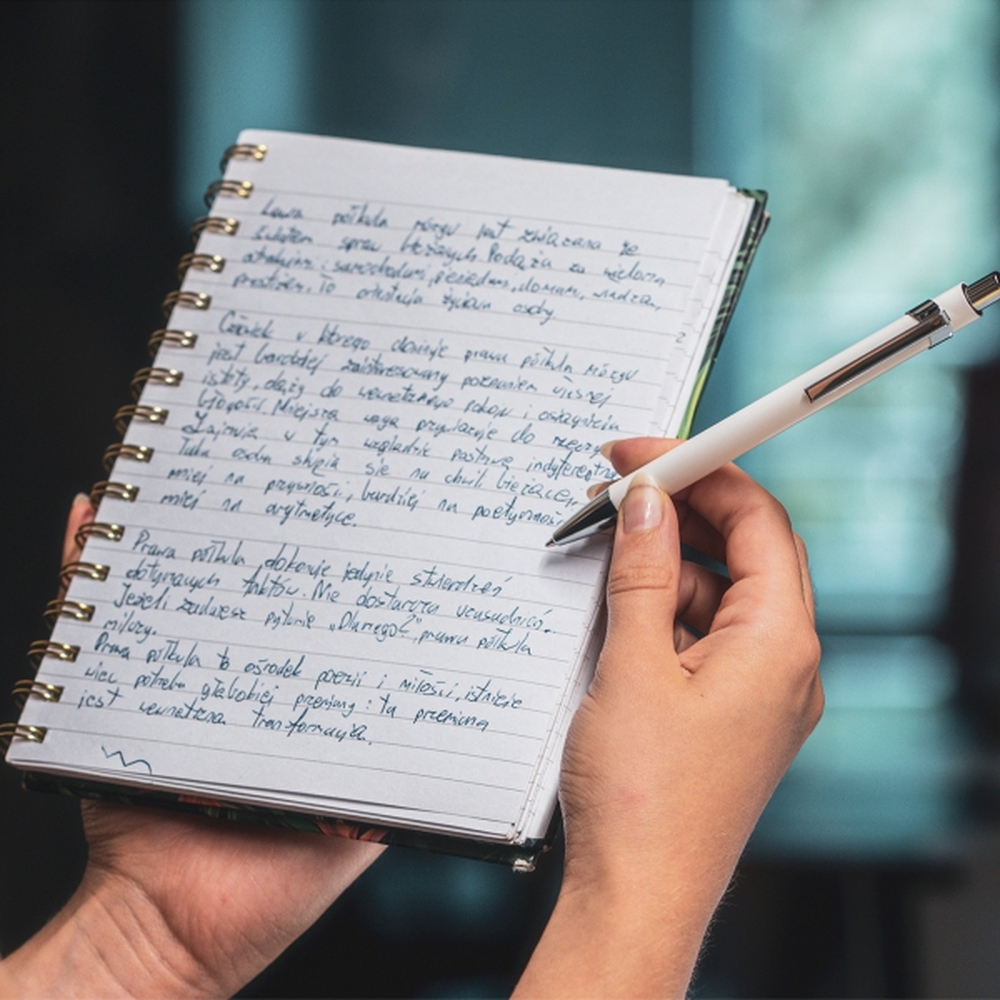 Lewa półkula mózgu jest związana ze
światem spraw bieżących. Podąża za wieloma
atrakcjami: samochodami, pieniędzmi, domami, władzą,
prestiżem. To orientacja życiowa osoby
Człowiek w którego dominuje prawa półkula mózgu
jest bardziej zainteresowany poznaniem własnej
istoty, dąży do wewnętrznego pokoju i osiągnięcia
błogości. Mniejszą wagę przywiązuje do rzeczy
Zajmuje w tym względzie postawę indyferentną
Taka osoba skupia się na chwili bieżącej,
mniej na przyszłości, bardziej na poetyczności
mniej na arytmetyce.
Prawa półkula dokonuje jedynie stwierdzeń
dotyczących faktów. Nie dostarcza uzasadnień.
Jeżeli zadajesz pytanie „Dlaczego?" prawa półkula
milczy.
Prawa półkula to ośrodek poezji i miłości, istnieje
więc potrzeba głębokiej przemiany: ta przemiana
jest wewnętrzna transformacja.